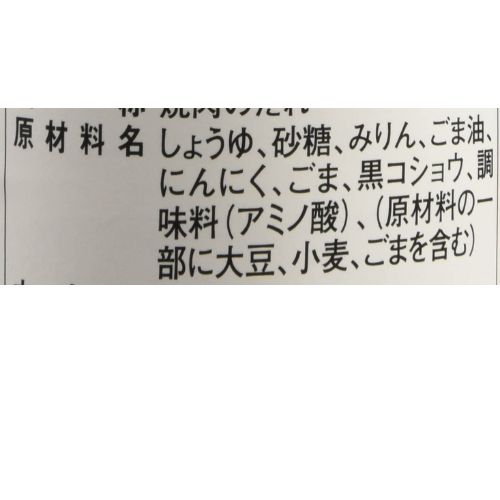 称 焼肉のたれ
原材料名 しょうゆ、砂糖、みりん、ごま油、
にんにく、ごま、黒コショウ、調
味料（アミノ酸）、（原材料の一
部に大豆、小麦、ごまを含む）